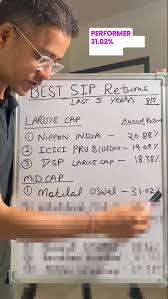 PERFORMER
31.02%
BEST SIP Returns
LAST 5 YEARS
LARGE CAP
Annual Return
① NIPPON INDIA - 20.88%
② ICICI PRU BLUECHIP - 19.09%
③ DSP LARGE CAP - 18.38%
MID CAP
① Motilal OSWAL - 31.02%